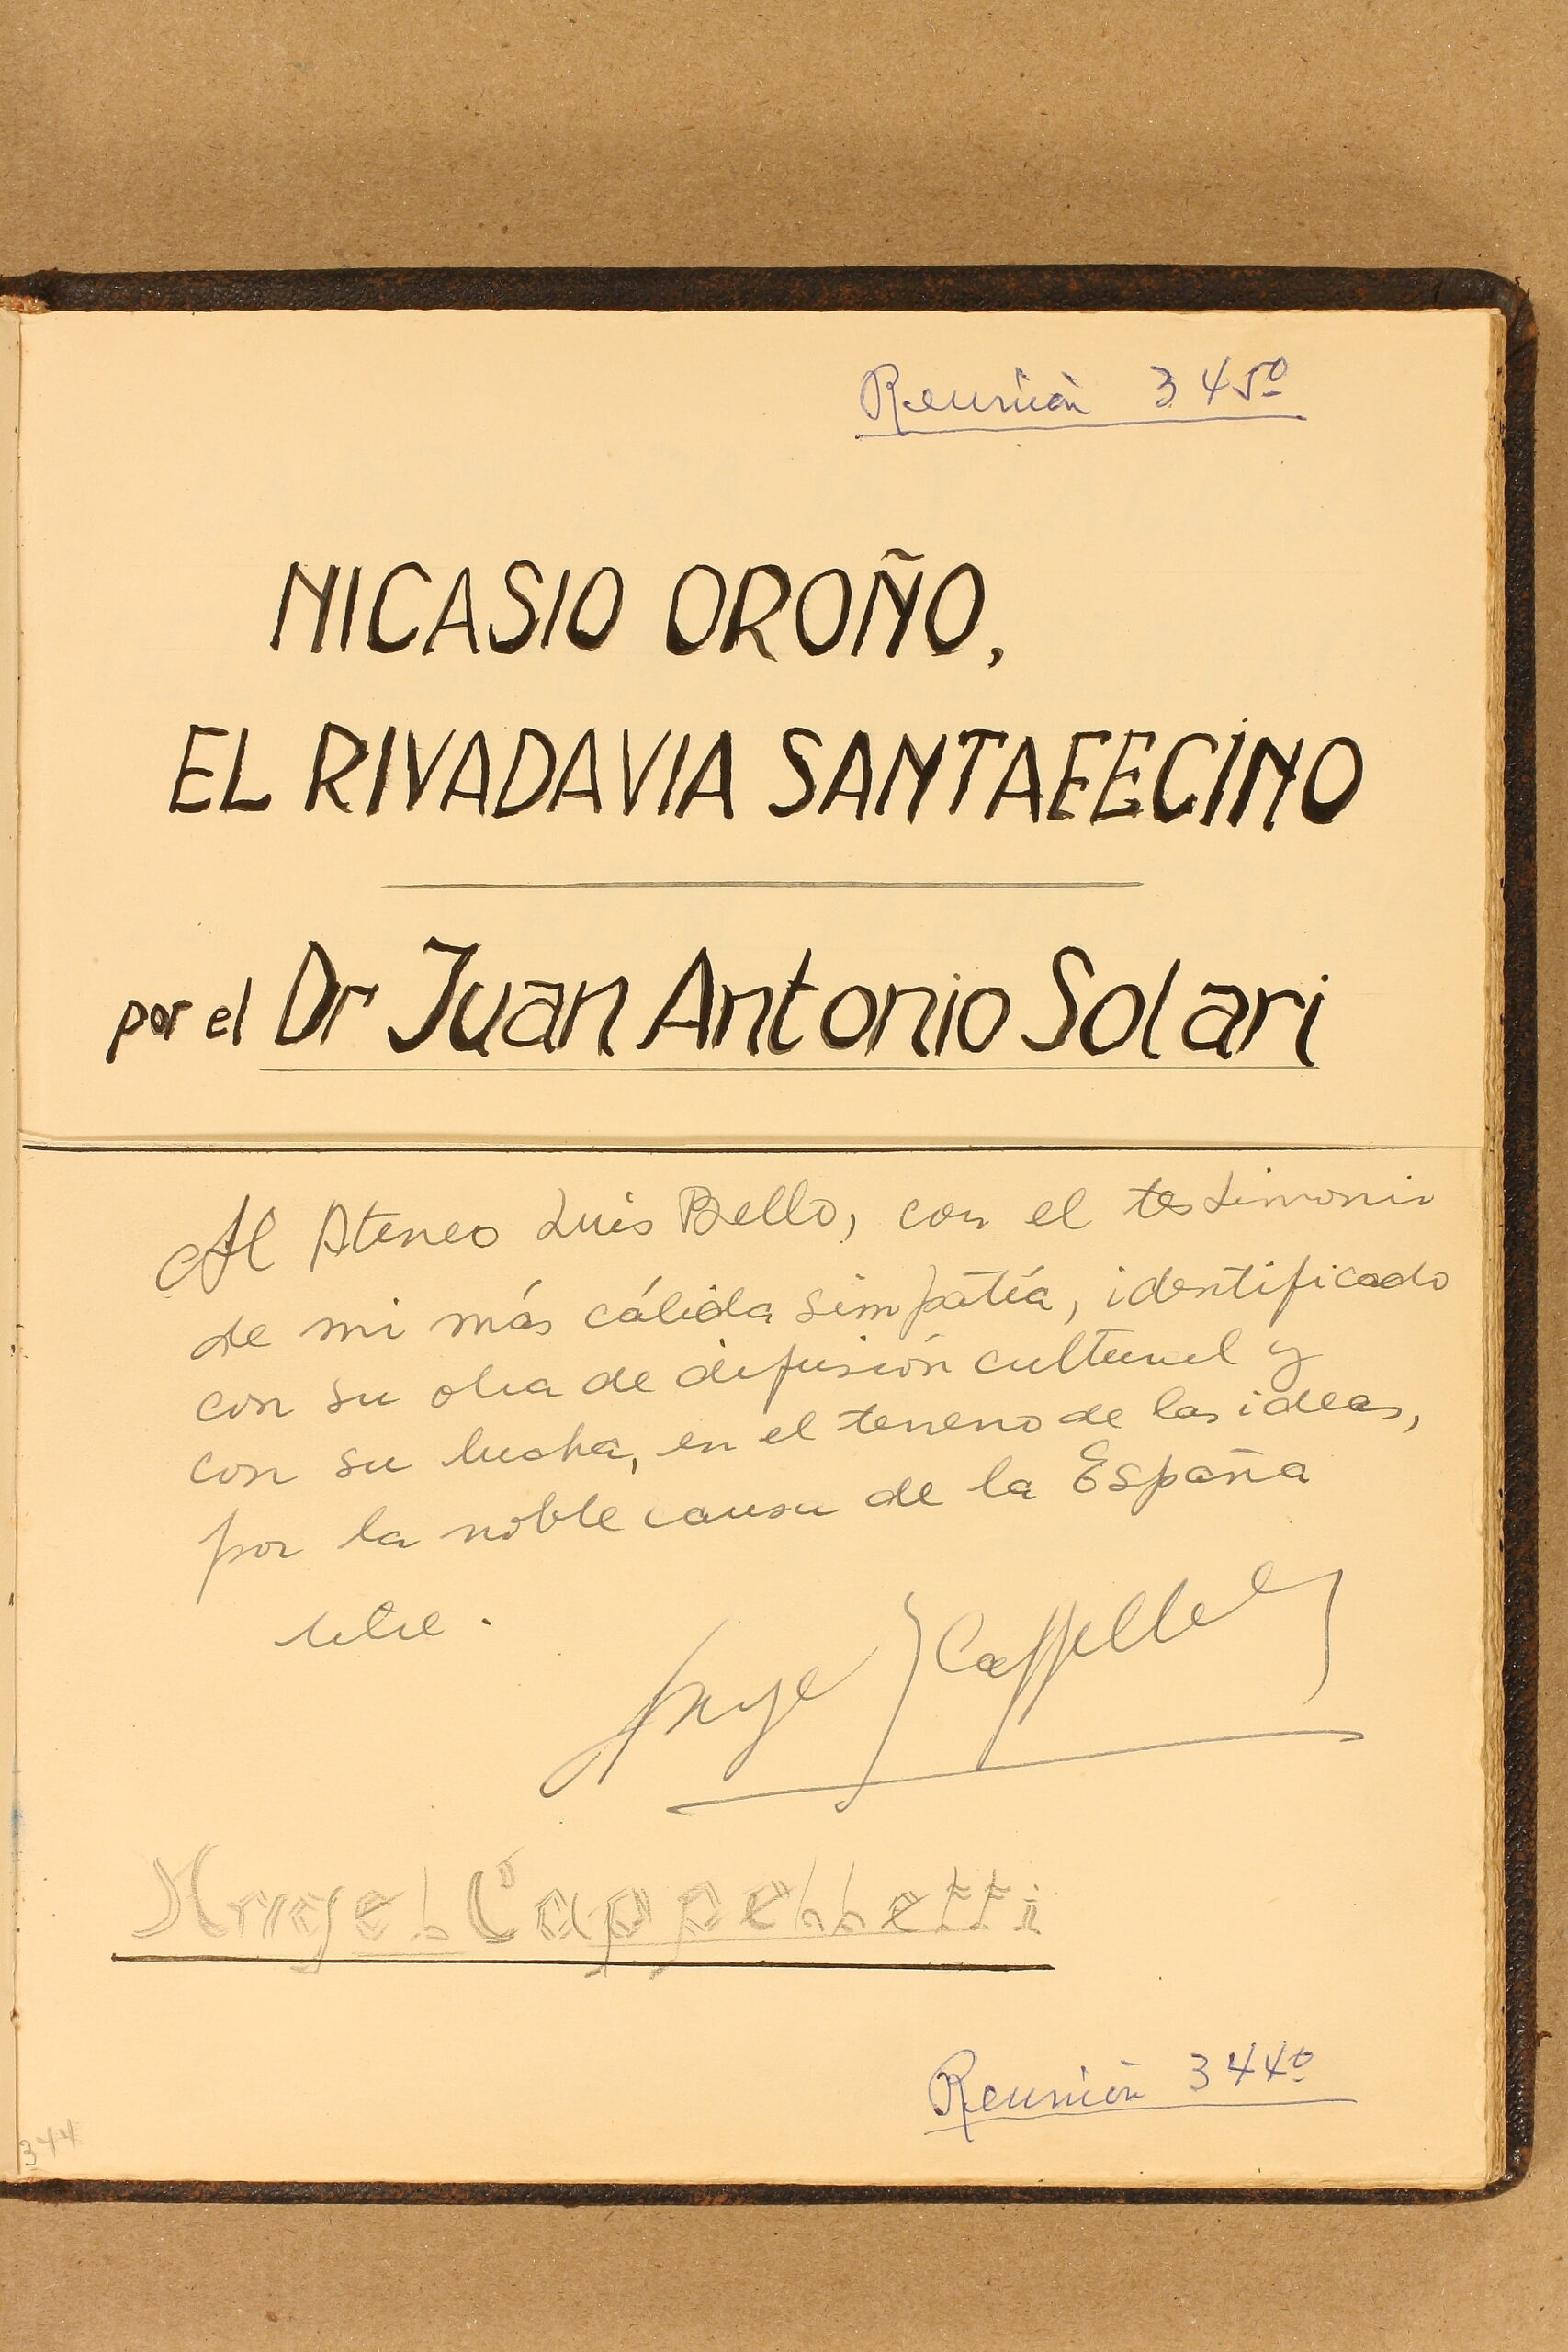 Reunión 345º
NICASIO OROÑO,
EL RIVADAVIA SANTAFECINO
por el Dr Juan Antonio Solari
Al Ateneo Luis Bello, con el testimonio
de mi más cálida simpatía, identificado
con su obra de difusión cultural y
con su lucha, en el terreno de las ideas,
por la noble causa de la España
libre.
Angel J Cappelletti
Angel Cappelletti
Reunión 344º
344